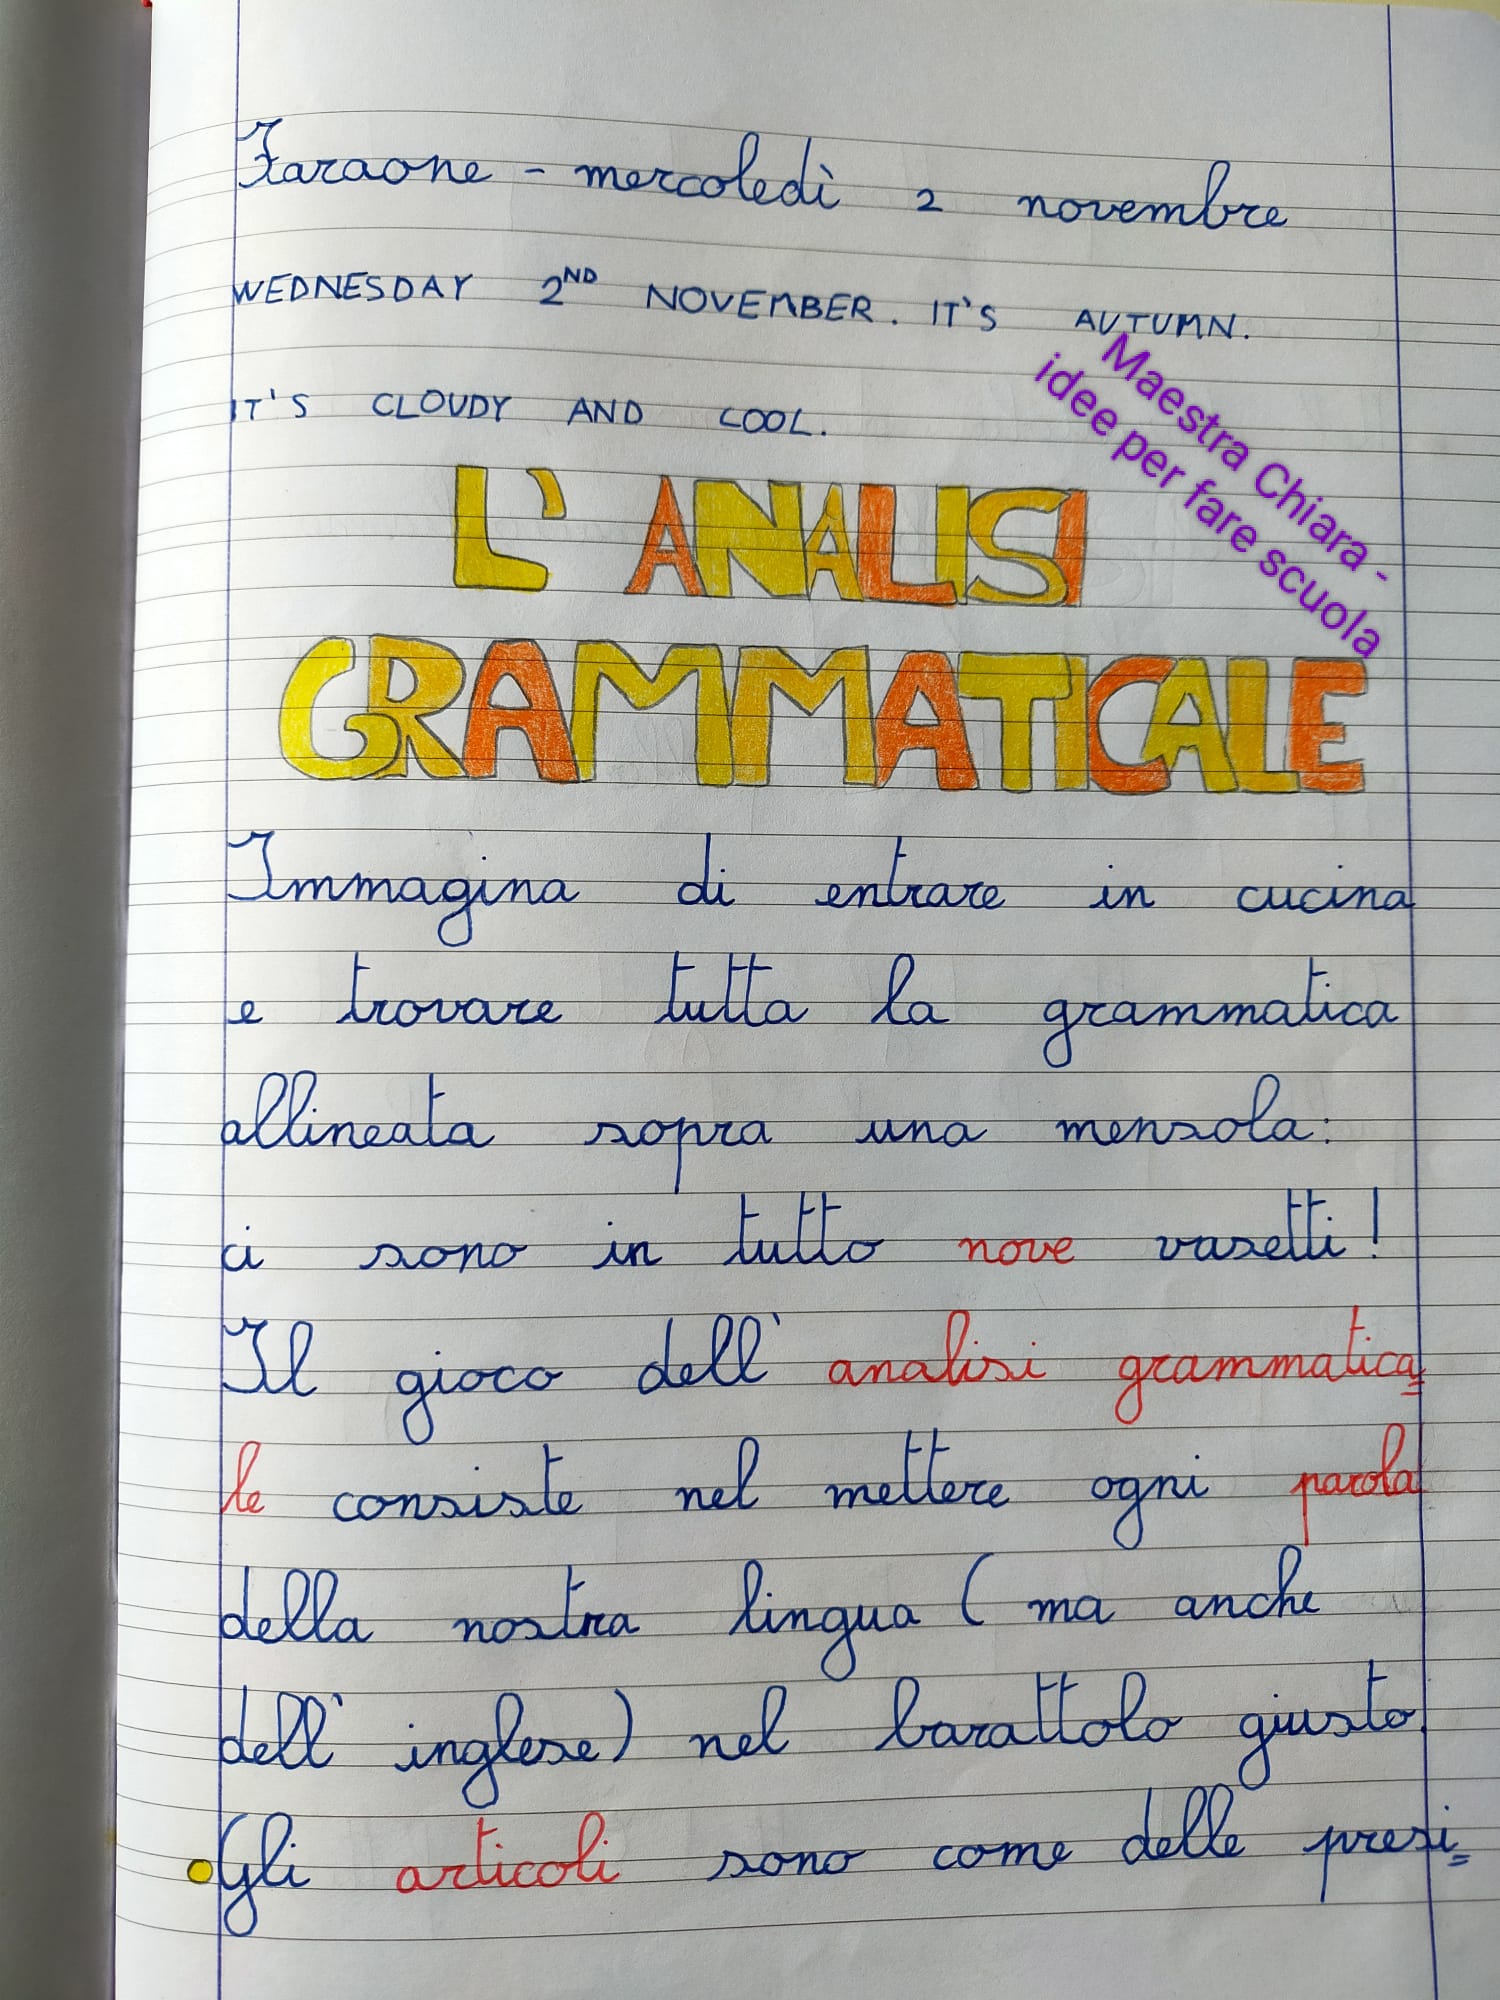 Faraone - mercoledì 2 novembre
WEDNESDAY 2ND NOVEMBER. IT'S AUTUMN.
IT'S CLOUDY AND COOL.
Maestra Chiara -
idee per fare scuola
L'ANALISI
GRAMMATICALE
Immagina di entrare in cucina
e trovare tutta la grammatica
allineata sopra una mensola:
ci sono in tutto nove vasetti!
Il gioco dell'analisi grammatica=
le consiste nel mettere ogni parola
della nostra lingua (ma anche
dell'inglese) nel barattolo giusto.
Gli articoli sono come delle presi=